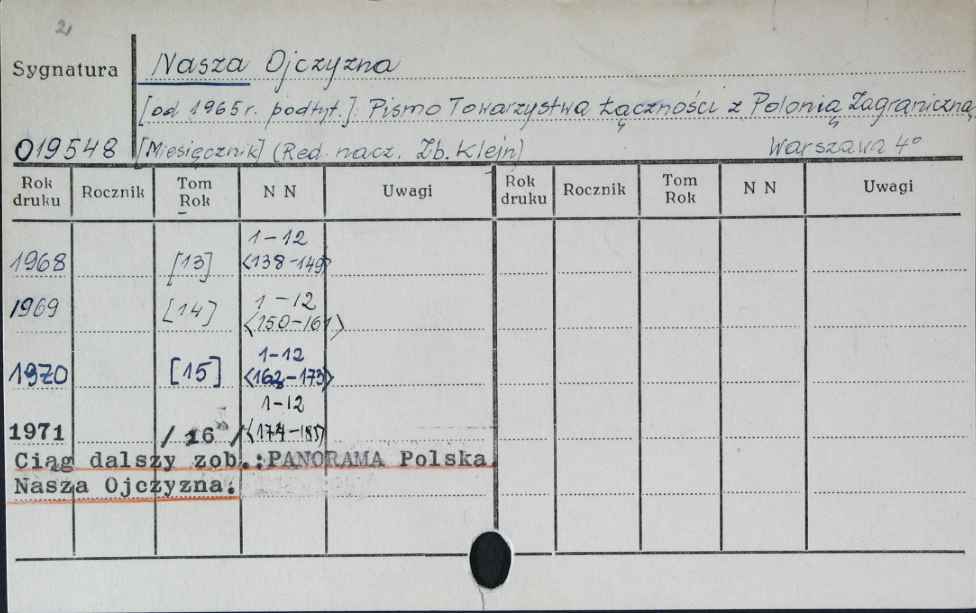 2
Nasza Ojczyzna
Sygnatura
[od 1965 r. podtyt.]: Pismo Towarzystwa Łączności z Polonią Zagraniczną
019548 [Miesięcznik] (Red. nacz. Zb. Klejn) Warszawa 4°
Rok druku Rocznik Tom Rok N N Uwagi Rok druku Rocznik Tom Rok N N Uwagi
1968 [13] 1-12 <138-149>
1969 [14] 1-12 <150-161>
1970 [15] 1-12 <162-173>
1971 / 16 / 1-12 <174-185>
Ciąg dalszy zob.:PANORAMA Polska
Nasza Ojczyzna.